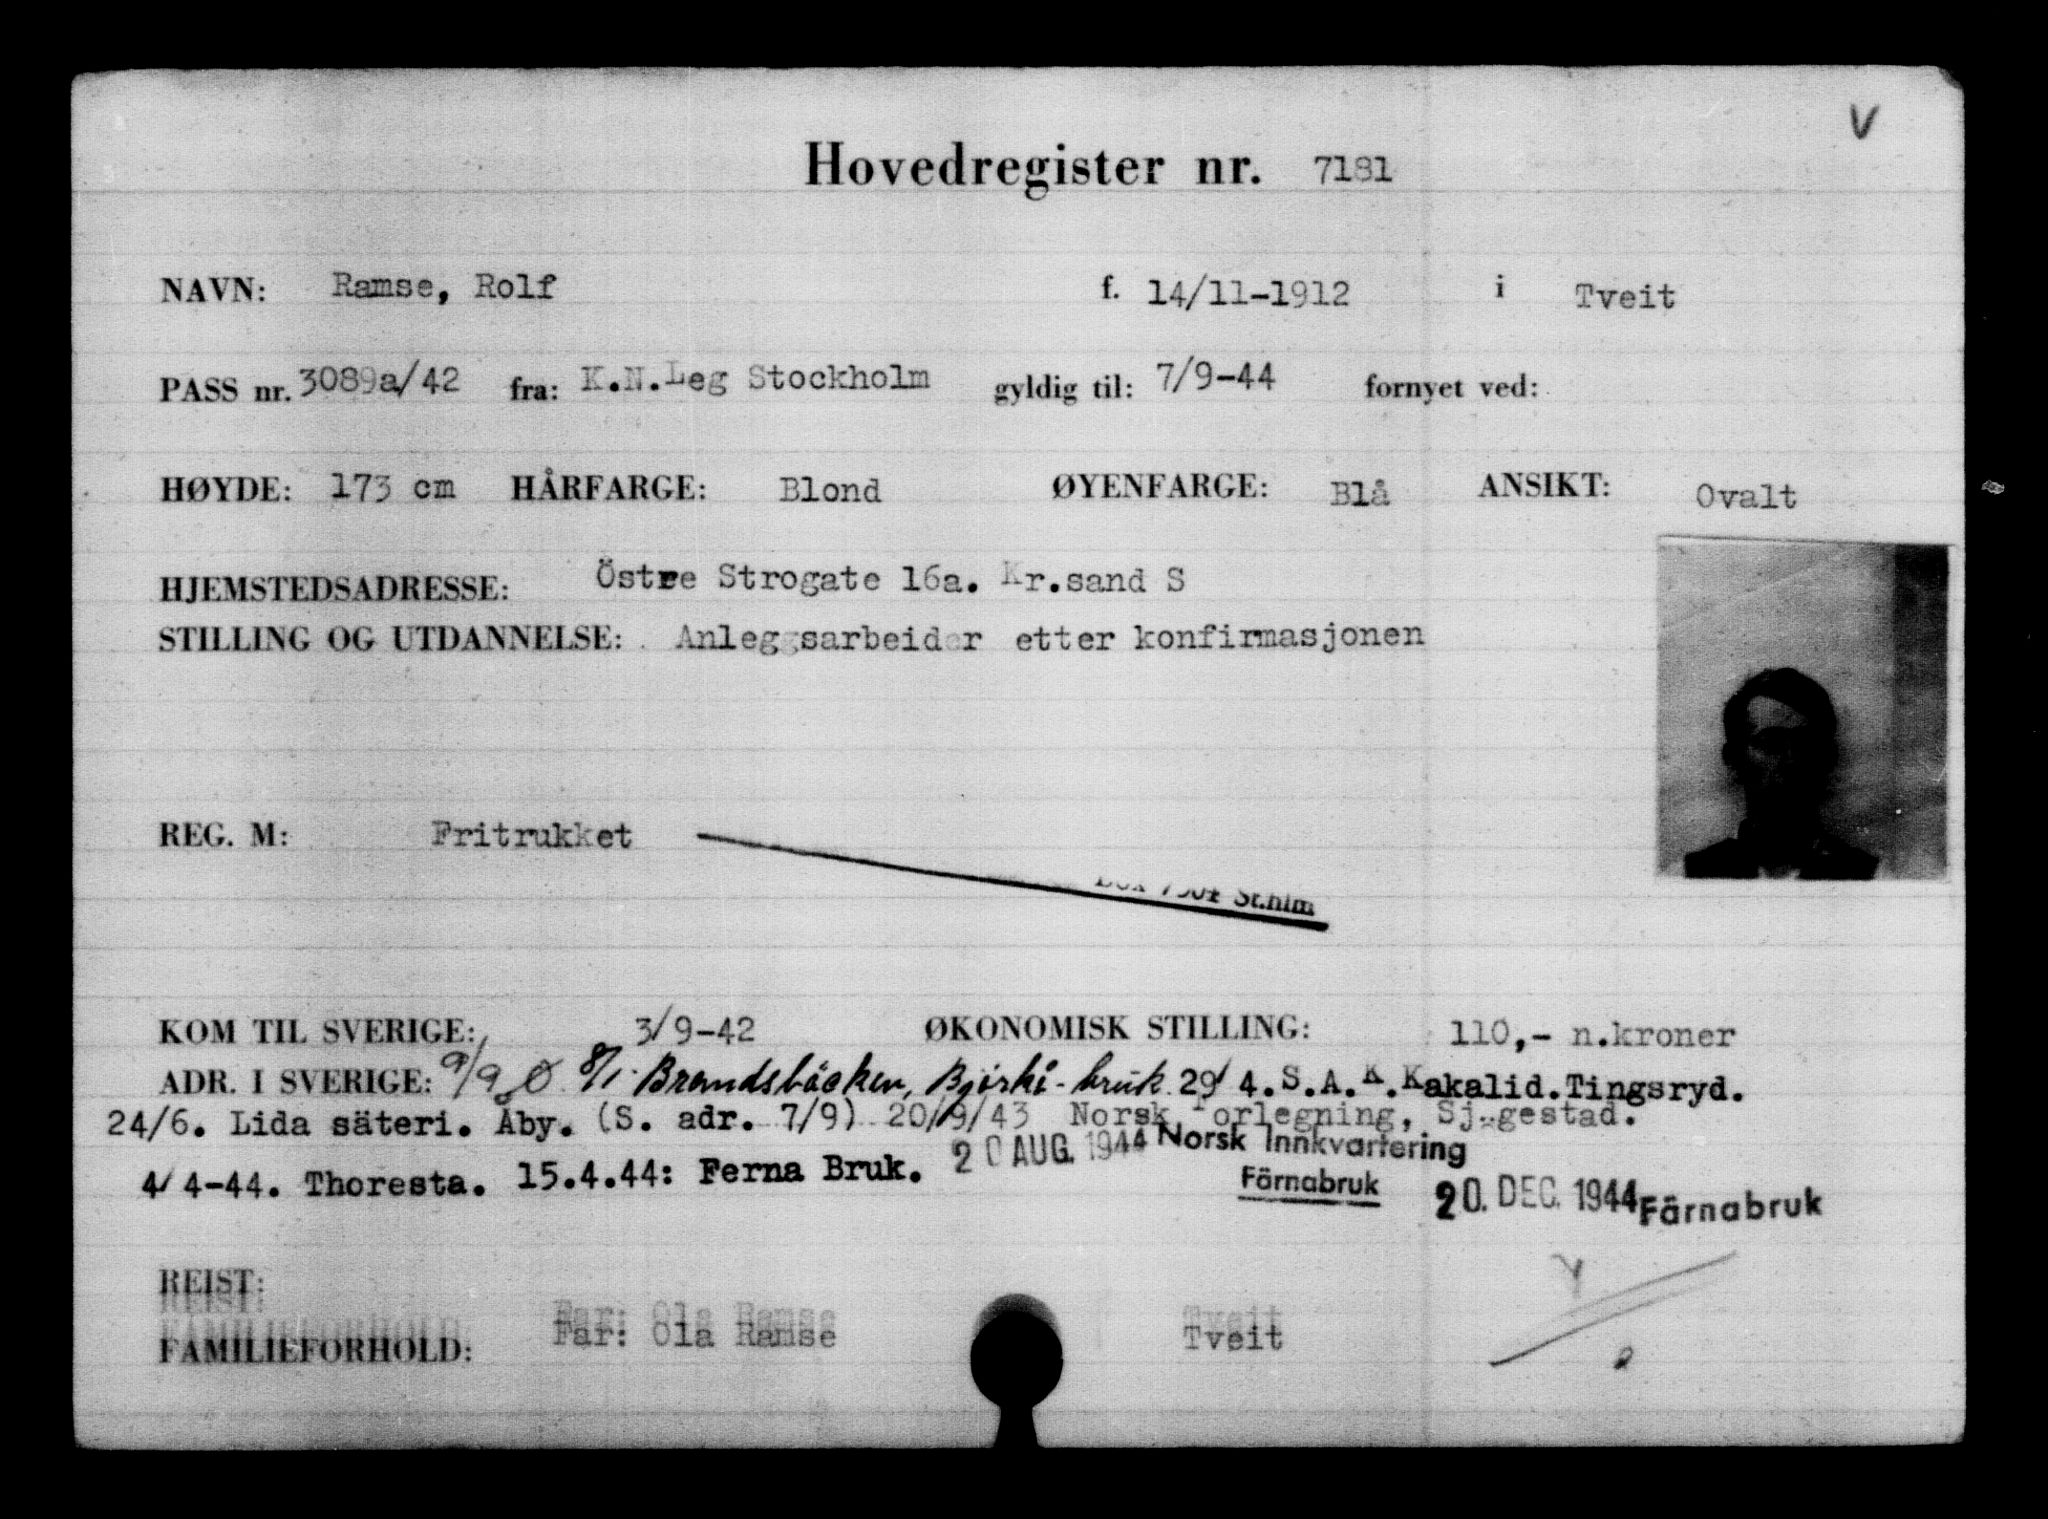 V
Hovedregister nr. 7181
NAVN: Ramse, Rolf f. 14/11-1912 i Tveit
PASS nr. 3089a/42 fra: K.N.Leg Stockholm gyldig til: 7/9-44 fornyet ved:
HØYDE: 173 cm HÅRFARGE: Blond ØYENFARGE: Blå ANSIKT: Ovalt
HJEMSTEDSADRESSE: Östre Strogate 16a. Kr.sand S
STILLING OG UTDANNELSE: Anleggsarbeider etter konfirmasjonen
REG. M: Fritrukket
St.hlm
KOM TIL SVERIGE: 3/9-42 ØKONOMISK STILLING: 110,- n.kroner
ADR. I SVERIGE: 9/9 Ö 8/1. Brandsbäcken, Björkö-bruk 29/4. S.A.K. Kakalid. Tingsryd.
24/6. Lida säteri. Åby. (S. adr. 7/9) 20/9/43 Norsk Forlegning, Sj.gestad.
4/4-44. Thoresta. 15.4.44: Ferna Bruk. 20 AUG. 1944 Norsk Innkvartering
Färnabruk 20. DEC. 1944 Färnabruk
REIST:
FAMILIEFORHOLD: Far: Ola Ramse Tveit